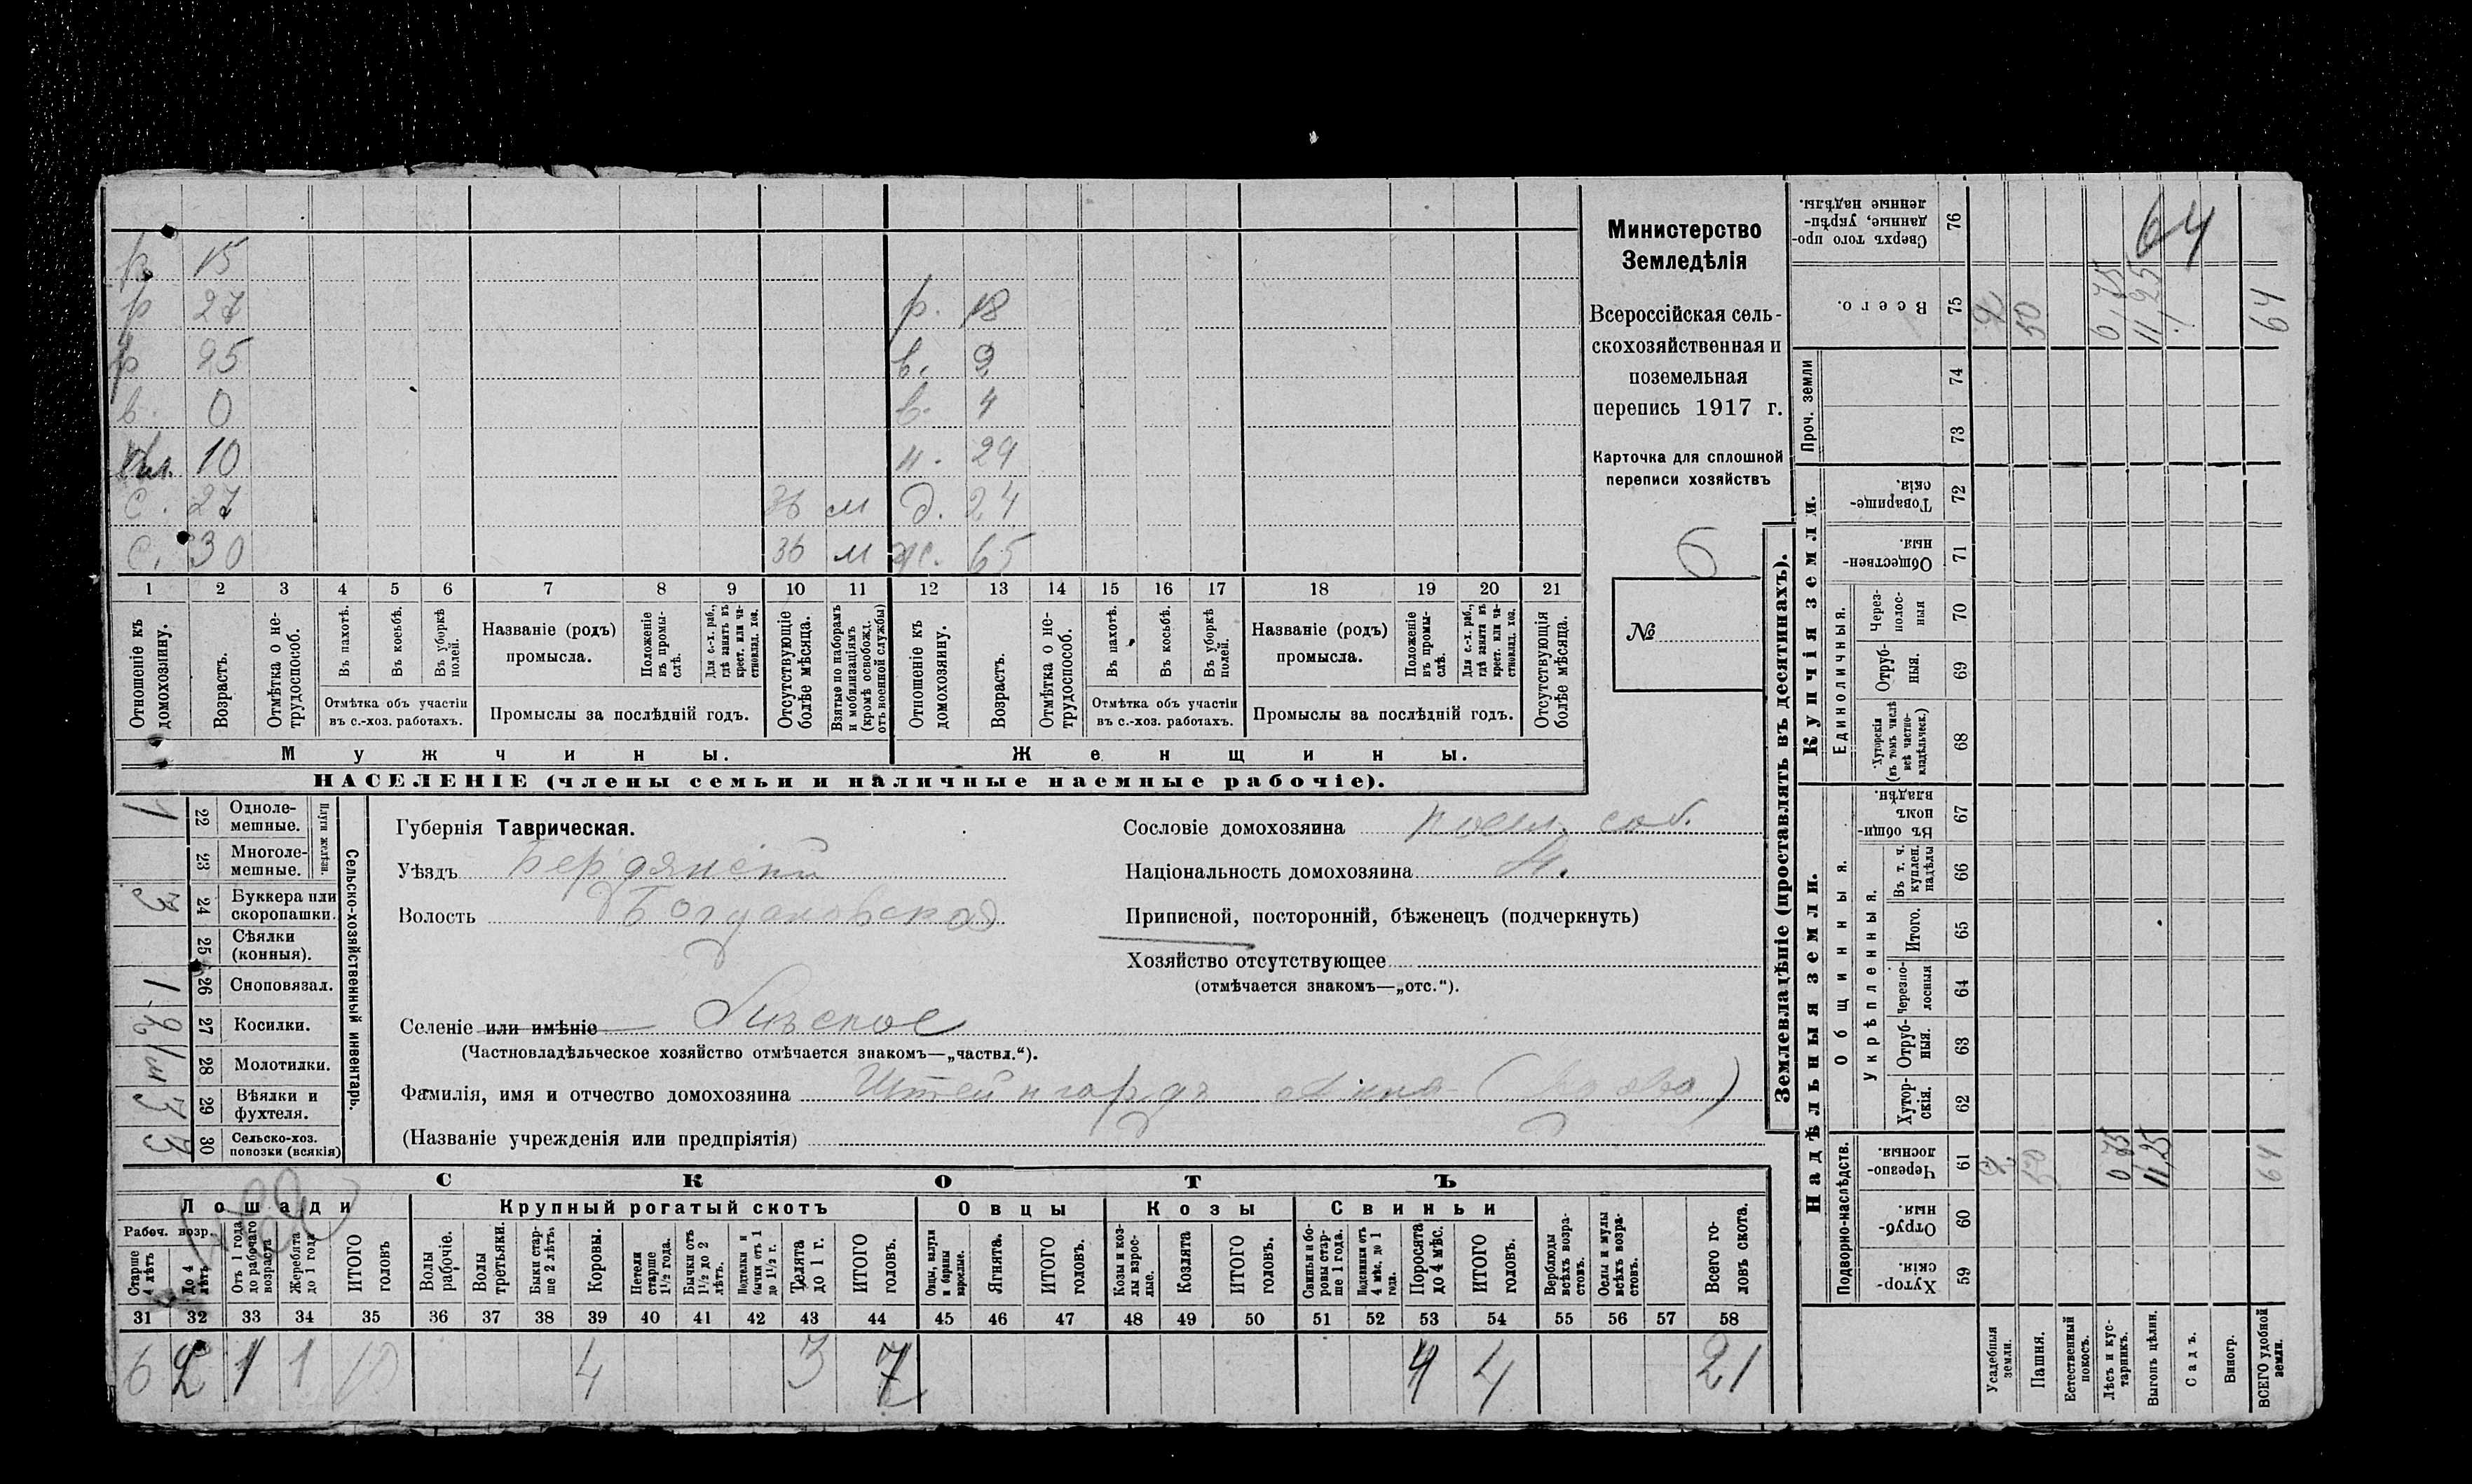 р. 15
р 27 р. 18
р 25 в. 9
в. 0 в. 4
10 н. 29
с. 27 36 м д. 24
с. 30 36 м ж. 65
1 2 3 4 5 6 7 8 9 10 11 12 13 14 15 16 17 18 19 20 21
Отношеніе къ домохозяину.
Возрастъ.
Отмѣтка о нетрудоспособ.
Въ пахотѣ.
Въ косьбѣ.
Въ уборкѣ полей.
Отмѣтка объ участіи въ с.-хоз. работахъ.
Названіе (родъ) промысла.
Положеніе въ промыслѣ.
Для с.-х. раб., гдѣ занятъ въ крест. или частновлад. хоз.
Промыслы за послѣдній годъ.
Отсутствующіе болѣе мѣсяца.
Взятые по наборамъ и мобилизаціямъ (кромѣ освобожд. отъ военной службы)
Отношеніе къ домохозяину.
Возрастъ.
Отмѣтка о нетрудоспособ.
Въ пахотѣ.
Въ косьбѣ.
Въ уборкѣ полей.
Отмѣтка объ участіи въ с.-хоз. работахъ.
Названіе (родъ) промысла.
Положеніе въ промыслѣ.
Для с.-х. раб., гдѣ занята въ крест. или частновлад. хоз.
Промыслы за послѣдній годъ.
Отсутствующія болѣе мѣсяца.
Мужчины. Женщины.
НАСЕЛЕНІЕ (члены семьи и наличные наемные рабочіе).
Министерство
Земледѣлія
Всероссійская сель-
скохозяйственная и
поземельная
перепись 1917 г.
Карточка для сплошной
переписи хозяйствъ
6
№
Сельско-хозяйственный инвентарь.
Плуги желѣзн.
22 Одноле-мешные. 1
23 Многоле-мешные.
24 Буккера или скоропашки. 3
25 Сѣялки (конныя).
26 Сноповязал. 1
27 Косилки. 2
28 Молотилки.
29 Вѣялки и фухтеля. 3
30 Сельско-хоз. повозки (всякія) 3
Губернія Таврическая.
Уѣздъ Бердянскій
Волость Богдановская
Селеніе или имѣніе
(Частновладѣльческое хозяйство отмѣчается знакомъ—„частвл.“).
Фамилія, имя и отчество домохозяина Штейнгардъ Анна (вдова)
(Названіе учрежденія или предпріятія)
Сословіе домохозяина посел. соб.
Національность домохозяина Н.
Приписной, посторонній, бѣженецъ (подчеркнуть)
Хозяйство отсутствующее
(отмѣчается знакомъ—„отс.“).
СКОТЪ
Лошади Крупный рогатый скотъ Овцы Козы Свиньи
Рабоч. возр.
Старше 4 лѣтъ
До 4 лѣтъ
Отъ 1 года до рабочаго возраста
Жеребята до 1 года
ИТОГО головъ
Волы рабочіе.
Волы третьяки.
Быки старше 2 лѣтъ.
Коровы.
Нетели старше 1½ года.
Бычки отъ 1½ до 2 лѣтъ.
Подтелки и бычки отъ 1 до 1½ г.
Телята до 1 г.
ИТОГО головъ.
Овцы, валухи и бараны взрослые.
Ягнята.
ИТОГО головъ.
Козы и козлы взрослые.
Козлята
ИТОГО головъ.
Свиньи и боровы старше 1 года.
Подсвинки отъ 4 мѣс. до 1 года.
Поросята до 4 мѣс.
ИТОГО головъ.
Верблюды всѣхъ возрастовъ.
Ослы и мулы всѣхъ возрастовъ.
Всего головъ скота.
31 32 33 34 35 36 37 38 39 40 41 42 43 44 45 46 47 48 49 50 51 52 53 54 55 56 57 58
6 2 1 1 10 4 3 7 4 4 21
Землевладѣніе (проставлять въ десятинахъ).
Надѣльныя земли. Купчія земли. Проч. земли
Подворно-наслѣдств.
Общинныя.
Укрѣпленныя.
Единоличныя.
Сверхъ того проданные, укрѣпленные надѣлы. 76 64
Всего. 75 2 50 0,75 11,25 64
74
73
Товарищескія. 72
Общественныя. 71
Черезполосныя 70
Отрубныя. 69
Хуторскія (въ томъ числѣ всѣ частновладѣльческ.) 68
Въ общинномъ владѣн. 67
Въ т. ч. куплен. надѣлы 66
Итого. 65
Черезполосныя 64
Отрубныя. 63
Хуторскія. 62
Черезполосныя. 61 2 50 0,75 11,25 64
Отрубныя. 60
Хуторскія. 59
Усадебныя земли.
Пашня.
Естественный покосъ.
Лѣсъ и кустарникъ.
Выгонъ цѣлин.
Садъ.
Виногр.
ВСЕГО удобной земли.